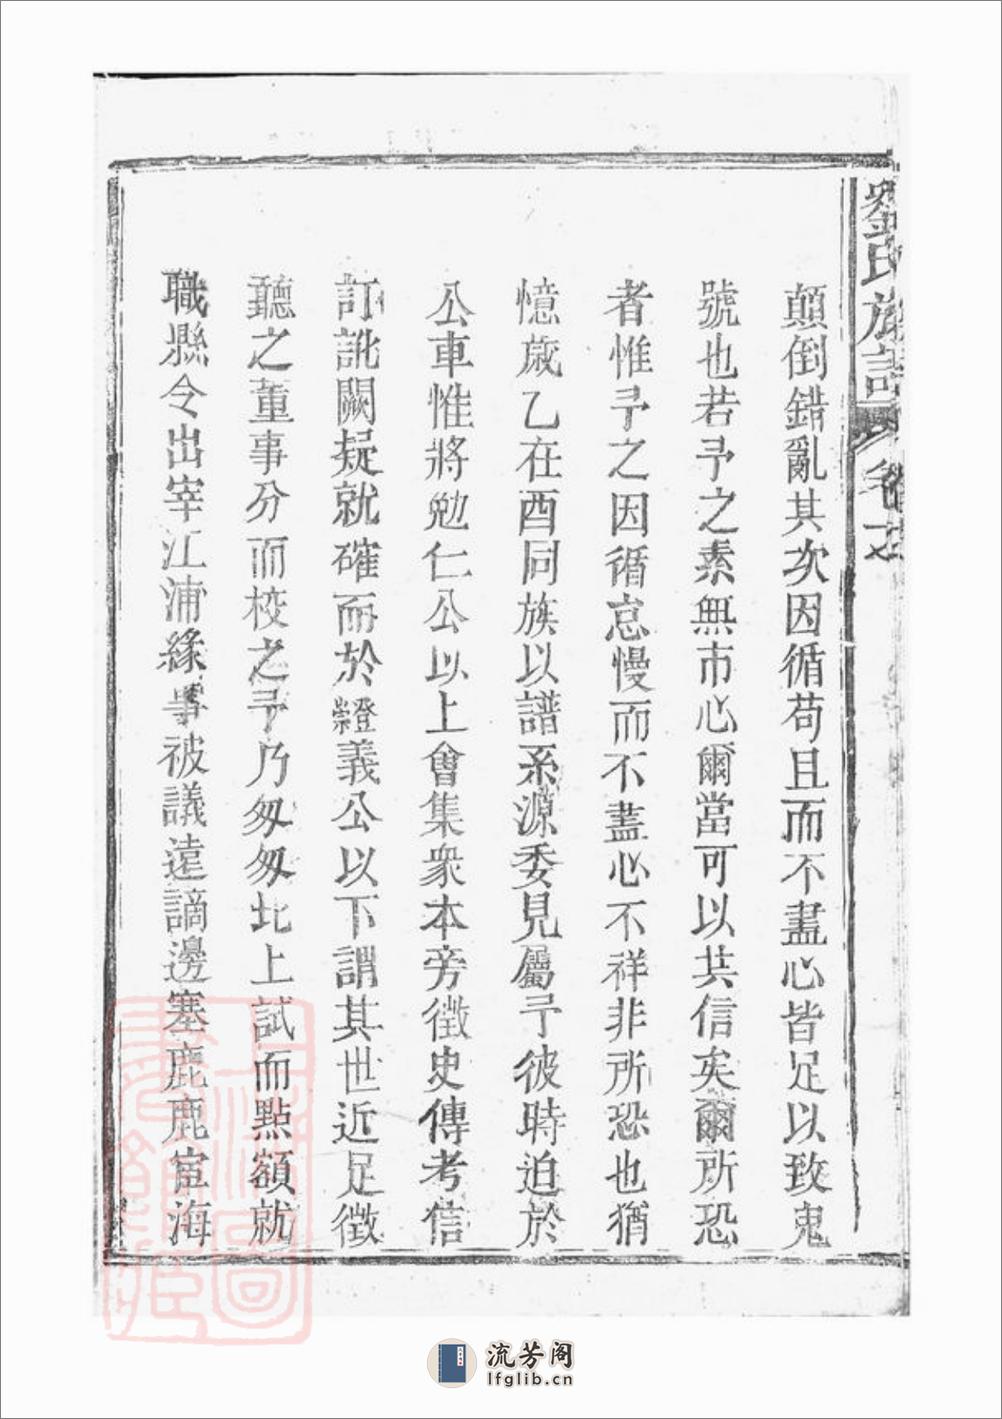 劉氏族譜 卷之
顛倒錯亂其次因循苟且而不盡心皆足以致鬼
號也若予之素無市心爾當可以共信矣爾所恐
者惟予之因循怠慢而不盡心不祥非所恐也猶
憶歲乙在酉同族以譜系源委見屬予彼時迫於
公車惟將勉仁公以上會集衆本旁徵史傳考信
訂訛闕疑就確而於證義公以下謂其世近足徵
聽之董事分而校之予乃匆匆北上試而點額就
職縣令出宰江浦緣事被議遠謫邊塞鹿鹿宦海
上海圖書館藏
流芳阁
lfglib.cn